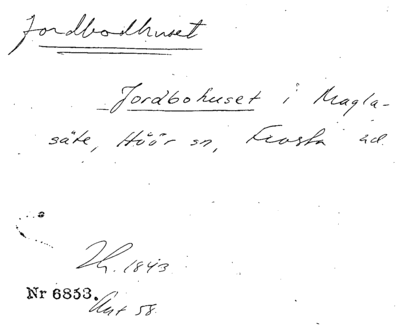 Jordbodhuset
Jordbohuset i Magla-
säte, Höör sn, Frosta hd.
1843
Nr 6853.
58.